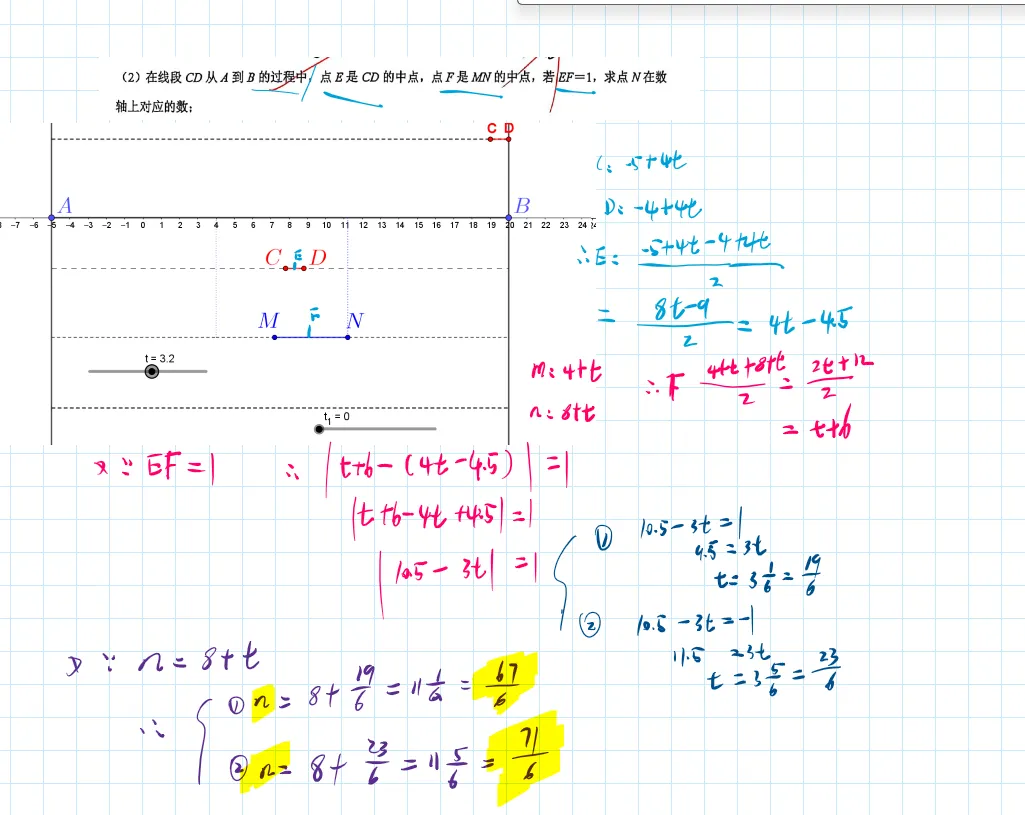 （2）在线段 CD 从 A 到 B 的过程中，点 E 是 CD 的中点，点 F 是 MN 的中点，若 EF＝1，求点 N 在数
轴上对应的数；
C D
A B
-7 -6 -5 -4 -3 -2 -1 0 1 2 3 4 5 6 7 8 9 10 11 12 13 14 15 16 17 18 19 20 21 22 23 24
C E D
M F N
t = 3.2
t₁ = 0
C: -5+4t
D: -4+4t
∴E: (-5+4t-4+4t)/2
= (8t-9)/2 = 4t-4.5
M: 4+t
n: 8+t
∴F (4+t+8+t)/2 = (2t+12)/2
= t+6
又∵ EF=1 ∴ |t+6-(4t-4.5)|=1
|t+6-4t+4.5|=1
|10.5-3t|=1
① 10.5-3t=1
9.5=3t
t=3 1/6=19/6
② 10.5-3t=-1
11.5=3t
t=3 5/6=23/6
又∵ n=8+t
∴ ① n=8+19/6=11 1/6=67/6
② n=8+23/6=11 5/6=71/6